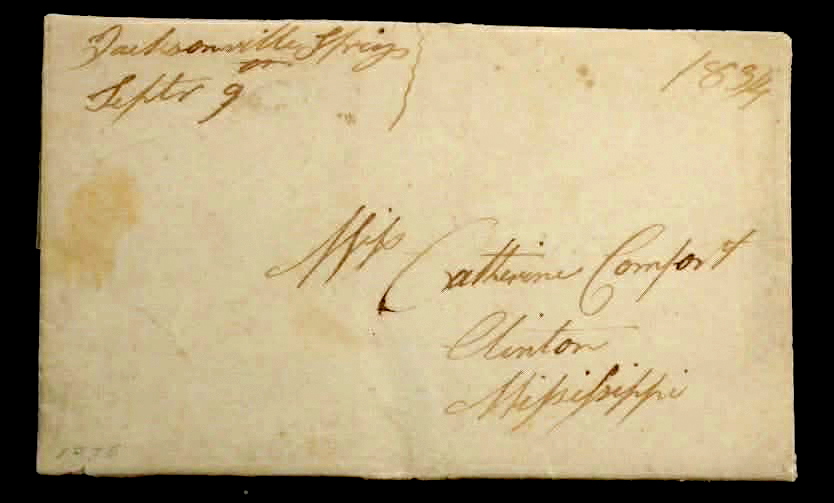 Jacksonville Springs
Septr 9
18¾
Miss Catherine Comfort
Clinton
Mississippi